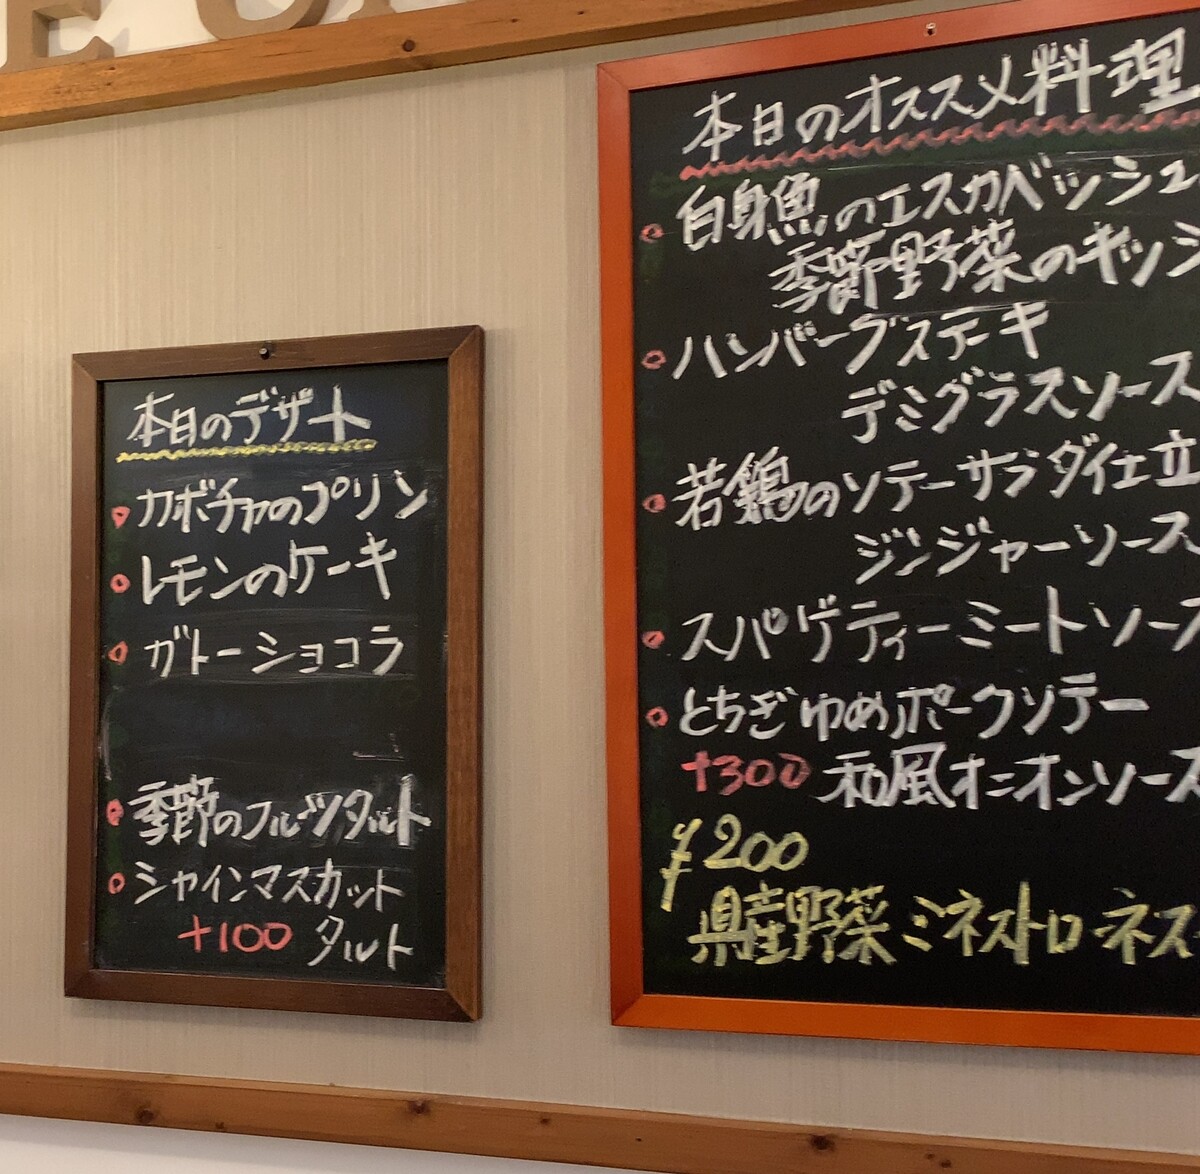 本日のデザート
カボチャのプリン
レモンのケーキ
ガトーショコラ
季節のフルーツタルト
シャインマスカット
+100 タルト
本日のオススメ料理
白身魚のエスカベッシュ
季節野菜のキッシ
ハンバーグステーキ
デミグラスソース
若鶏のソテーサラダ仕立
ジンジャーソース
スパゲティーミートソース
とちぎゆめポークソテー
+300 和風オニオンソース
¥200
県産野菜ミネストローネス